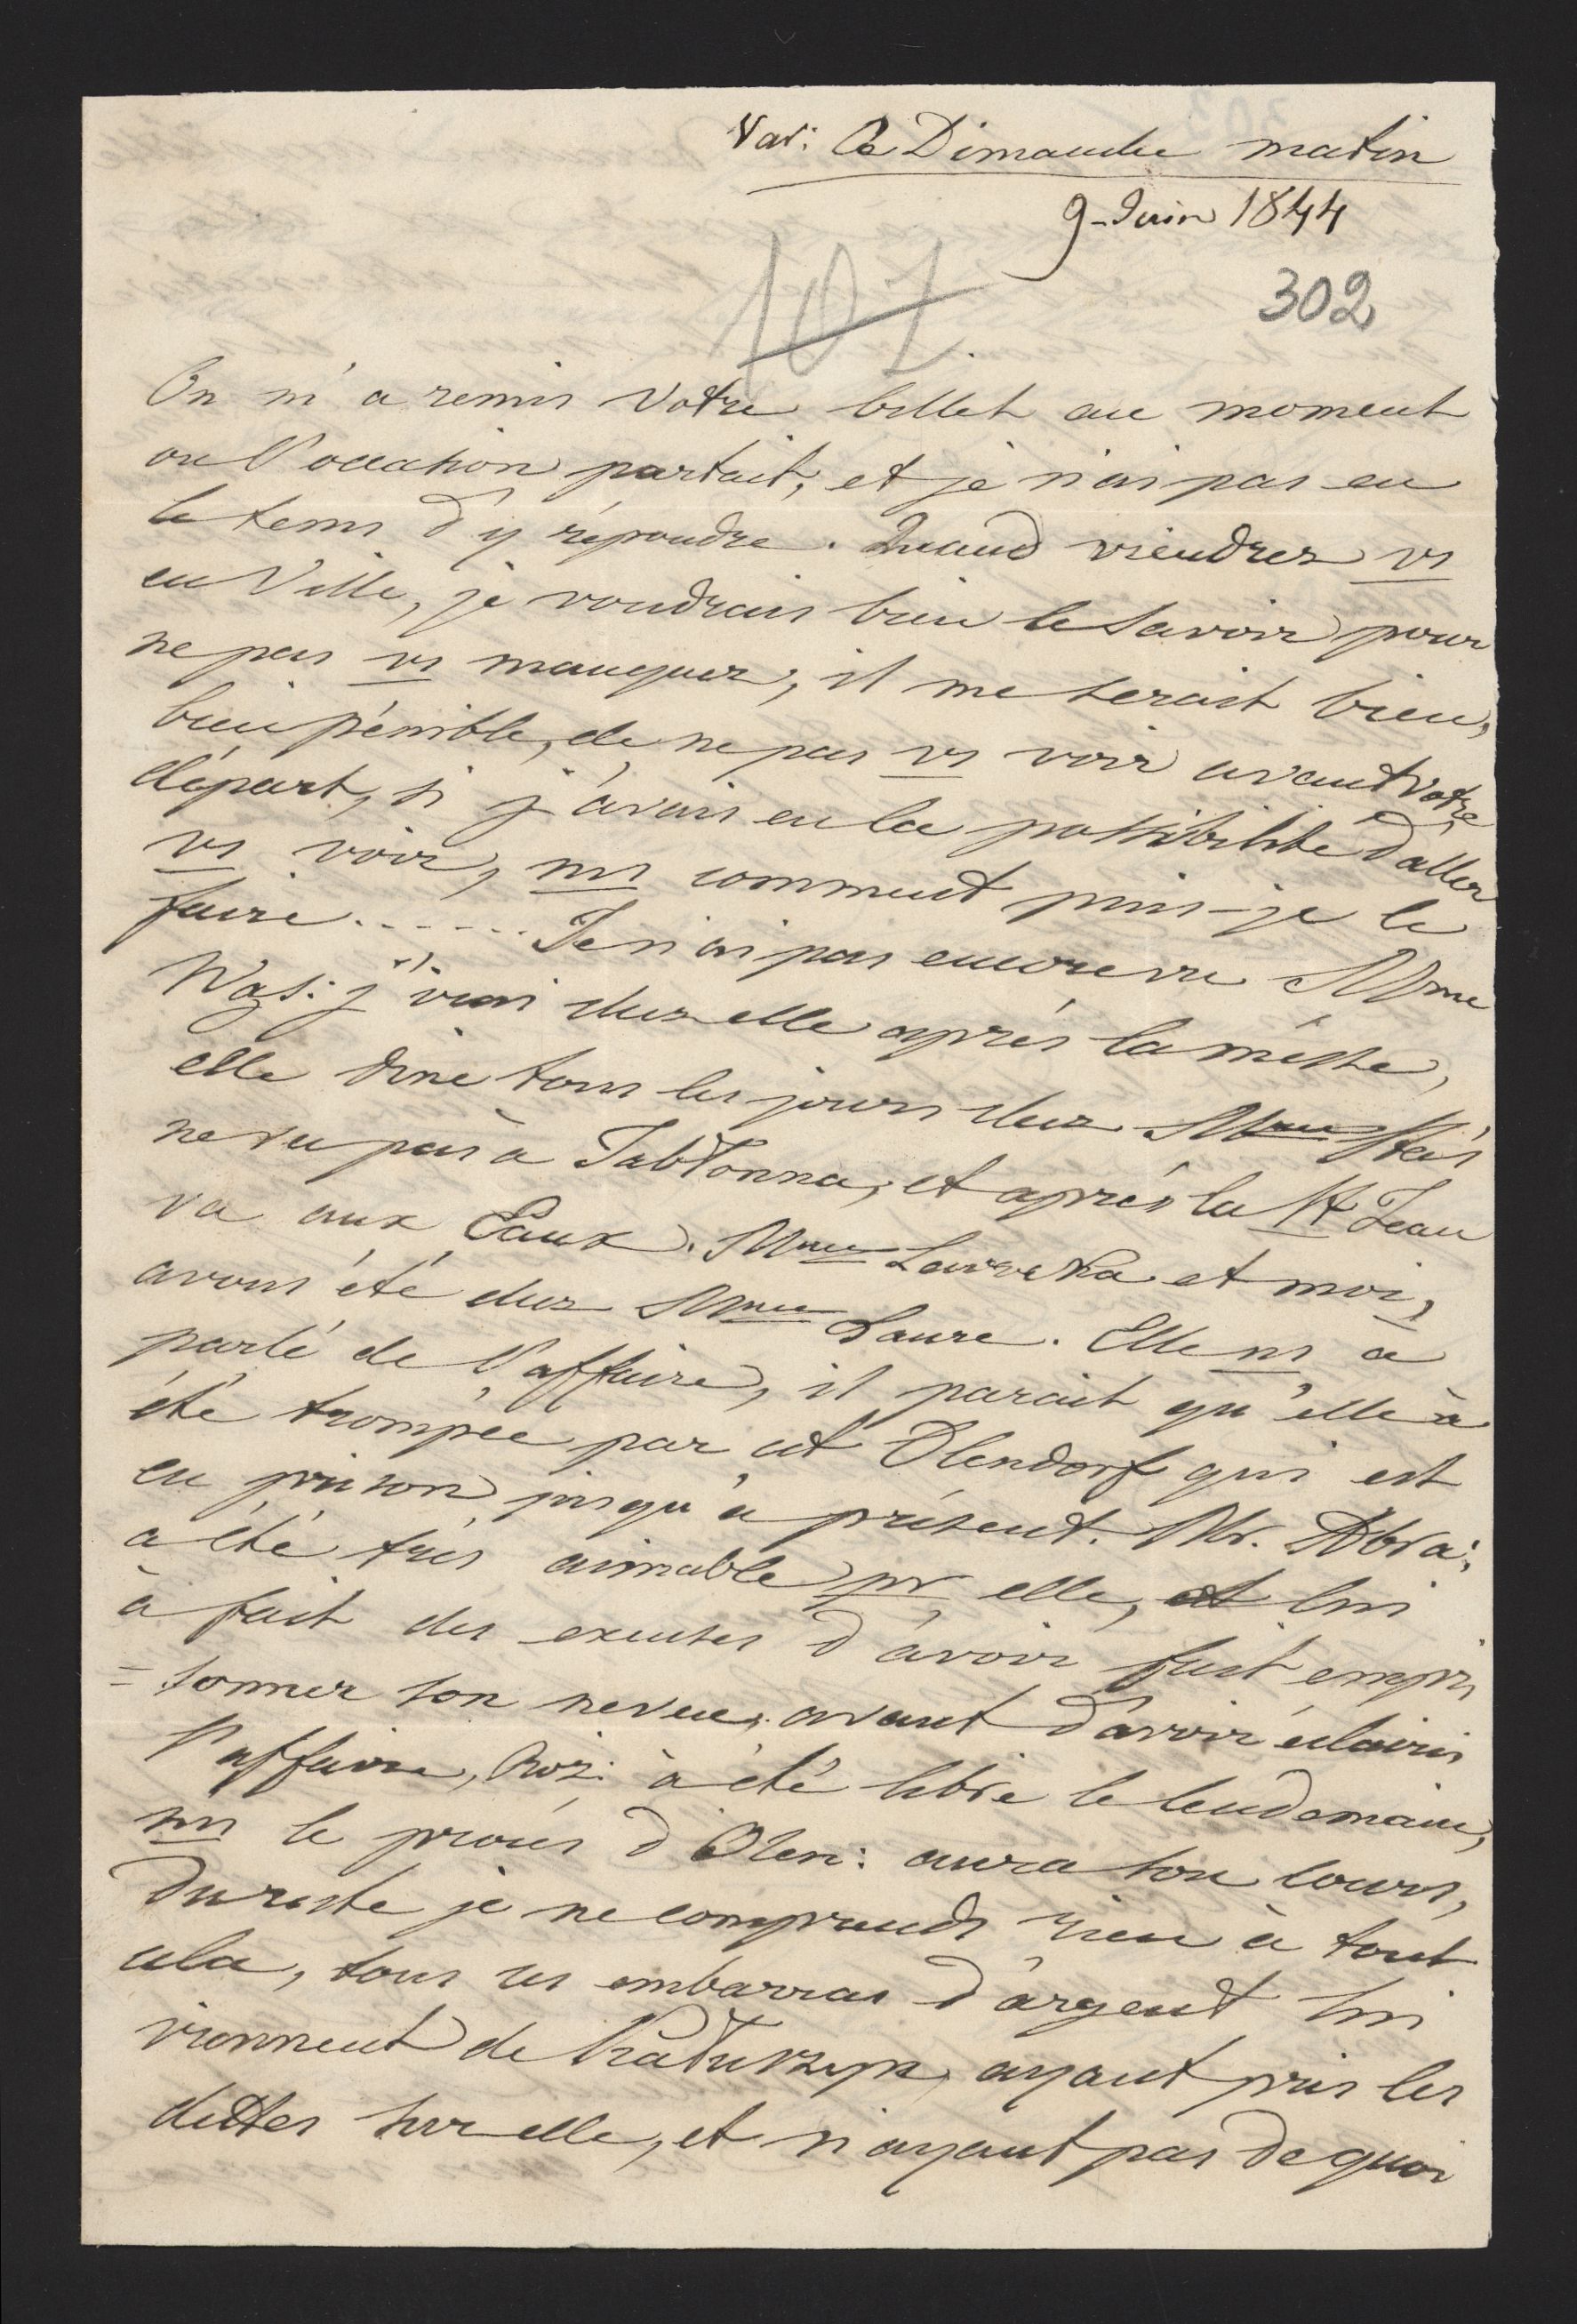 Var: Ce Dimanche matin
9 Juin 1844
302
101
On m'a remis votre billet au moment
ou l'occasion partait, et je n'ai pas eu
le tems d'y répondre. Quand viendrez vs
en Ville, je voudrais bien le savoir pour
ne pas vs manquer, il me serait bien,
bien pénible, de ne pas vs voir avant votre
départ, si j'avais eu la possibilité d'aller
vs voir, ms comment puis-je le
faire...... Je n'ai pas encore vu Mme
Wąs: j'irai chez elle après la messe,
elle dine tous les jours chez Mme
ne va pas à Jabłonna, et après la St Jean
va aux Eaux. Mme et moi,
avons été chez Mme Laure. Elle ns a
parlé de l'affaire, il parait qu'elle à
été trompée par cet Olendorf qui est
en prison jusqu'à présent. Mr. Abra:
a été très aimable pr elle, et lui
à fait des excuses d'avoir fait empri
= sonner son neveu, avant d'avoir éclairci
l'affaire, à été libre le lendemain,
ms le procès d'Olen: aura son cours,
Du reste je ne comprends rien à tout
cela, tous ces embarras d'argent lui
viennent de ayant pris les
dettes sur elle, et n'ayant pas de quoi